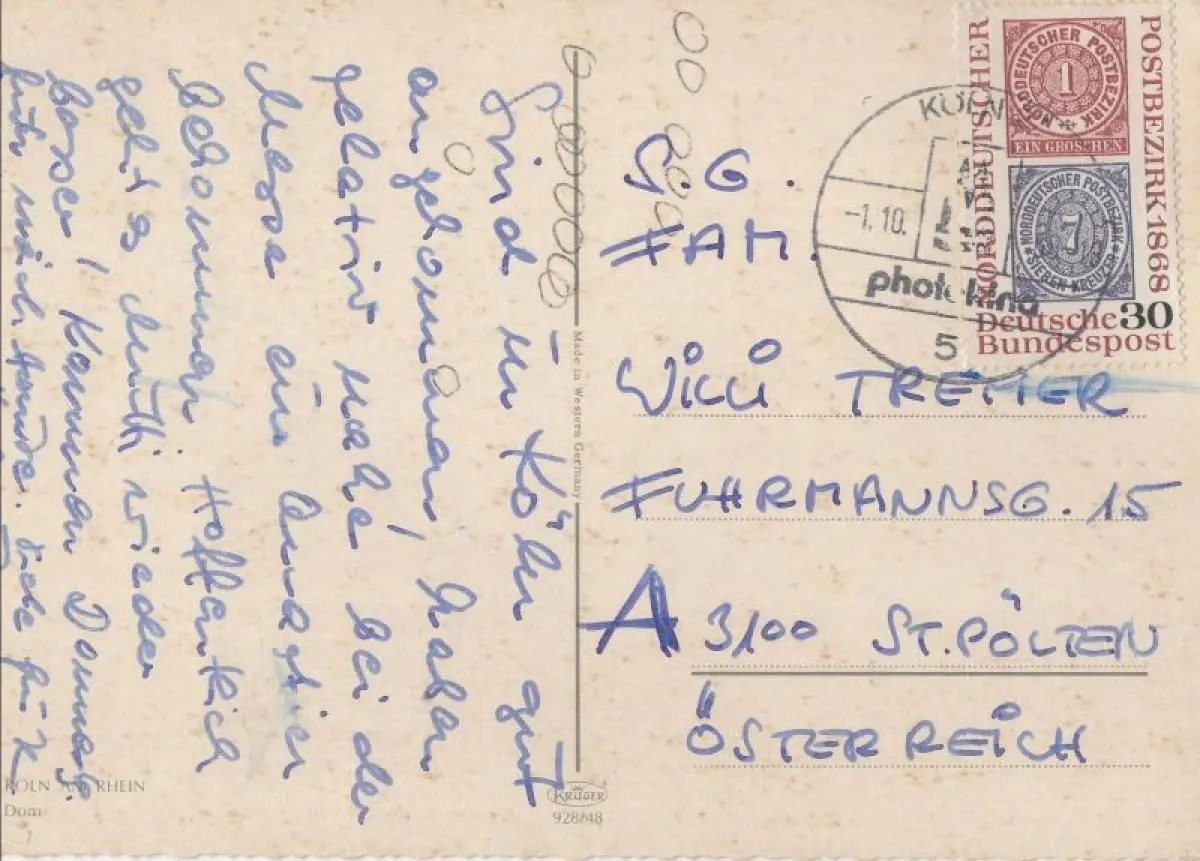 Sind in Köln gut
angekommen, haben
relativ nahe bei der
Messe ein Quartier
bekommen. Hoffentlich
geht es Mutti wieder
besser! Kommen Donnerst.
für mich
KÖLN AM RHEIN
Dom
Made in Western Germany
KRÜGER
928/48
S.G.
FAM.
WILLI TREMER
FUHRMANNSG. 15
A 3100 ST. PÖLTEN
ÖSTERREICH
KÖLN
-1.10.
photokina
5
NORDDEUTSCHER
POSTBEZIRK·1868
NORDDEUTSCHER POSTBEZIRK
1
EIN GROSCHEN
NORDDEUTSCHER POSTBEZIRK
7
SIEBEN KREUZER
Deutsche 30
Bundespost